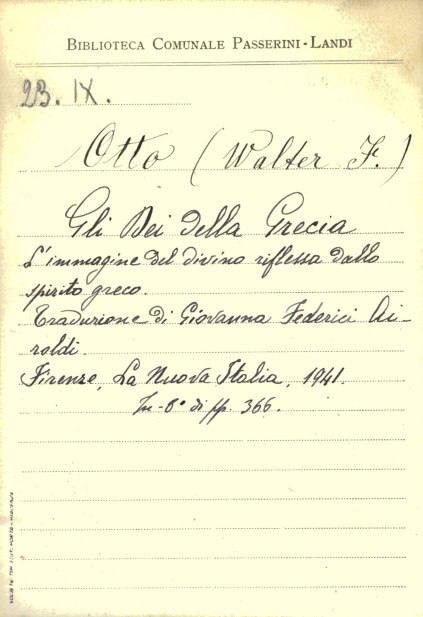 BIBLIOTECA COMUNALE PASSERINI-LANDI
23. IX.
Otto (Walter F.)
Gli Dei della Grecia
L'immagine del divino riflessa dallo
spirito greco.
Traduzione di Giovanna Federici Ai-
roldi.
Firenze, La Nuova Italia, 1941.
In-8° di pp. 366.